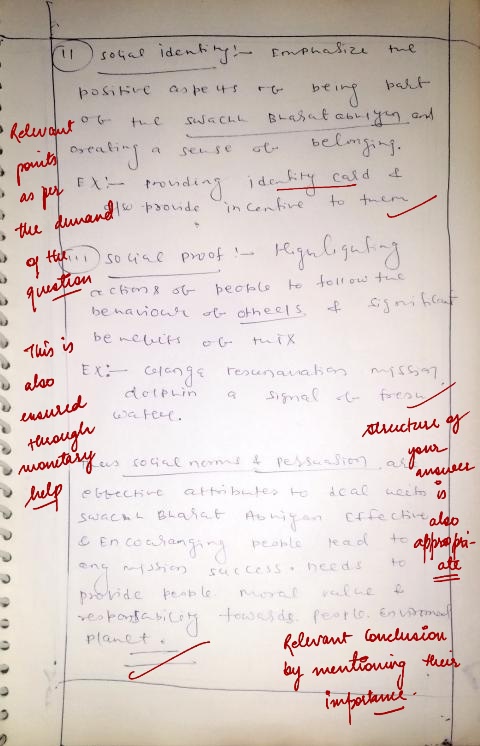 (ii) social identity:- Emphasize the
positive aspects of being part
of the swachh Bharat abhiyan and
creating a sense of belonging.
EX:- providing identity card &
also provide incentive to them
(iii) social proof:- Highlighting
actions of people to follow the
behaviour of others & significant
benefits of this
EX:- Ganga resunavation mission
dolphin a signal of fresh
water.
social norms & persuasion are
effective attributes to deal with
swachh Bharat Abhigan Effective
& Encouranging people lead to
any mission success. needs to
provide people moral value &
responsability towards people Enviroment
planet.
Relevant
points
as per
the demand
of the
question
This is
also
ensured
through
monetary
help
structure of
your
answer
is
also
appropri-
ate
Relevant conclusion
by mentioning their
importance.